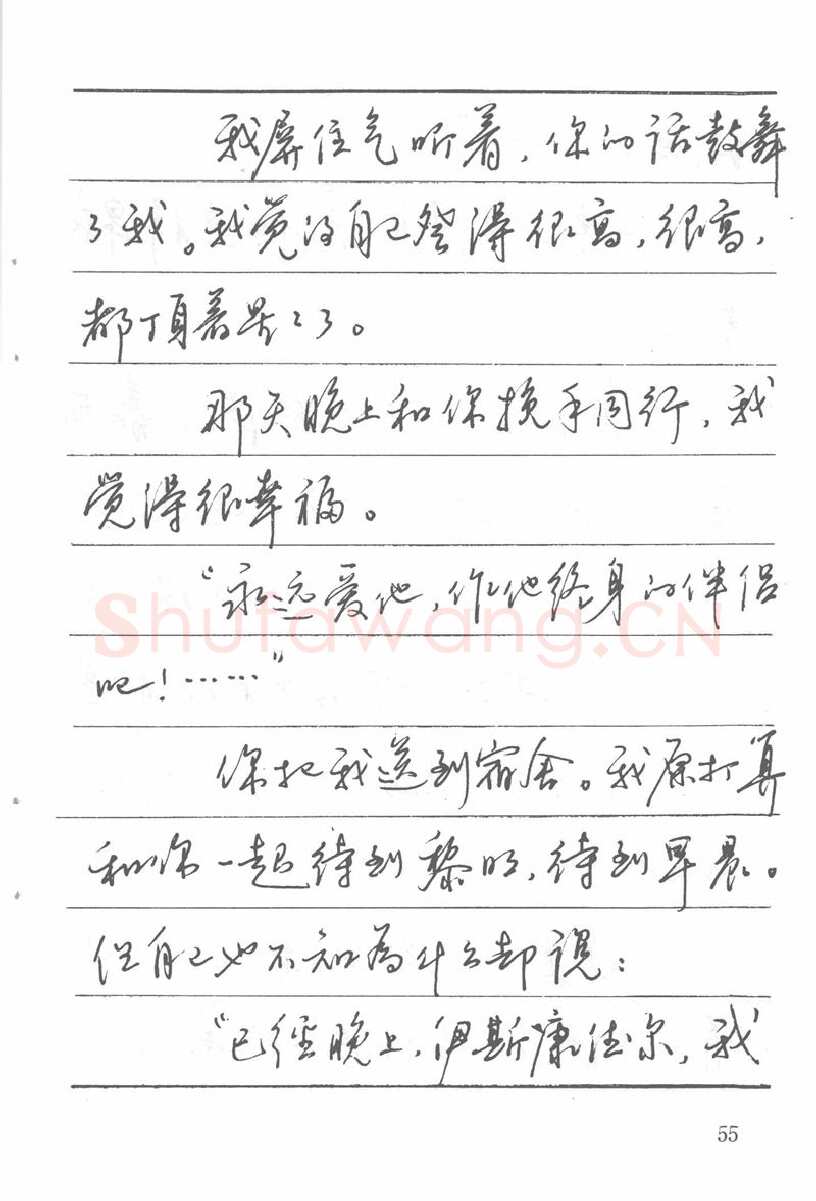 我屏住气听着，你的话鼓舞
了我。我觉得自己登得很高，很高，
都顶着星星了。
那天晚上和你挽手同行，我
觉得很幸福。
“永远爱他，作他终身的伴侣
吧！……”
你把我送到宿舍。我原打算
和你一起待到黎明，待到早晨。
但自己也不知为什么却说：
“已经晚上，伊斯康德尔，我
55
Shufawang.CN